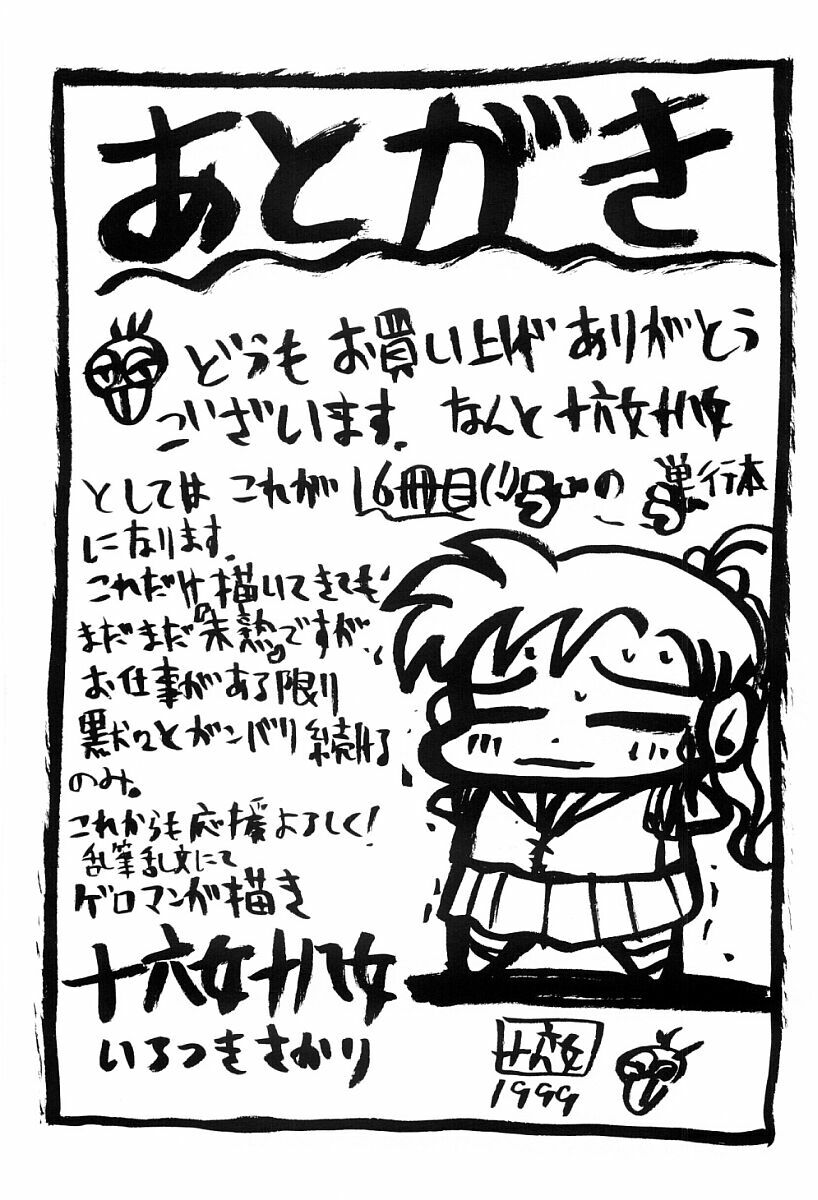 あとがき
どうもお買い上げありがとう
ございます。なんと十六女十八女
としてはこれが16冊目(!)の単行本
になります。
これだけ描いてきても
まだまだ『未熟』ですが、
お仕事がある限り
黙々とガンバリ続ける
のみ。
これからも応援よろしく!
乱筆乱文にて
ゲロマンガ描き
十六女十八女
いろつきさかり
1999